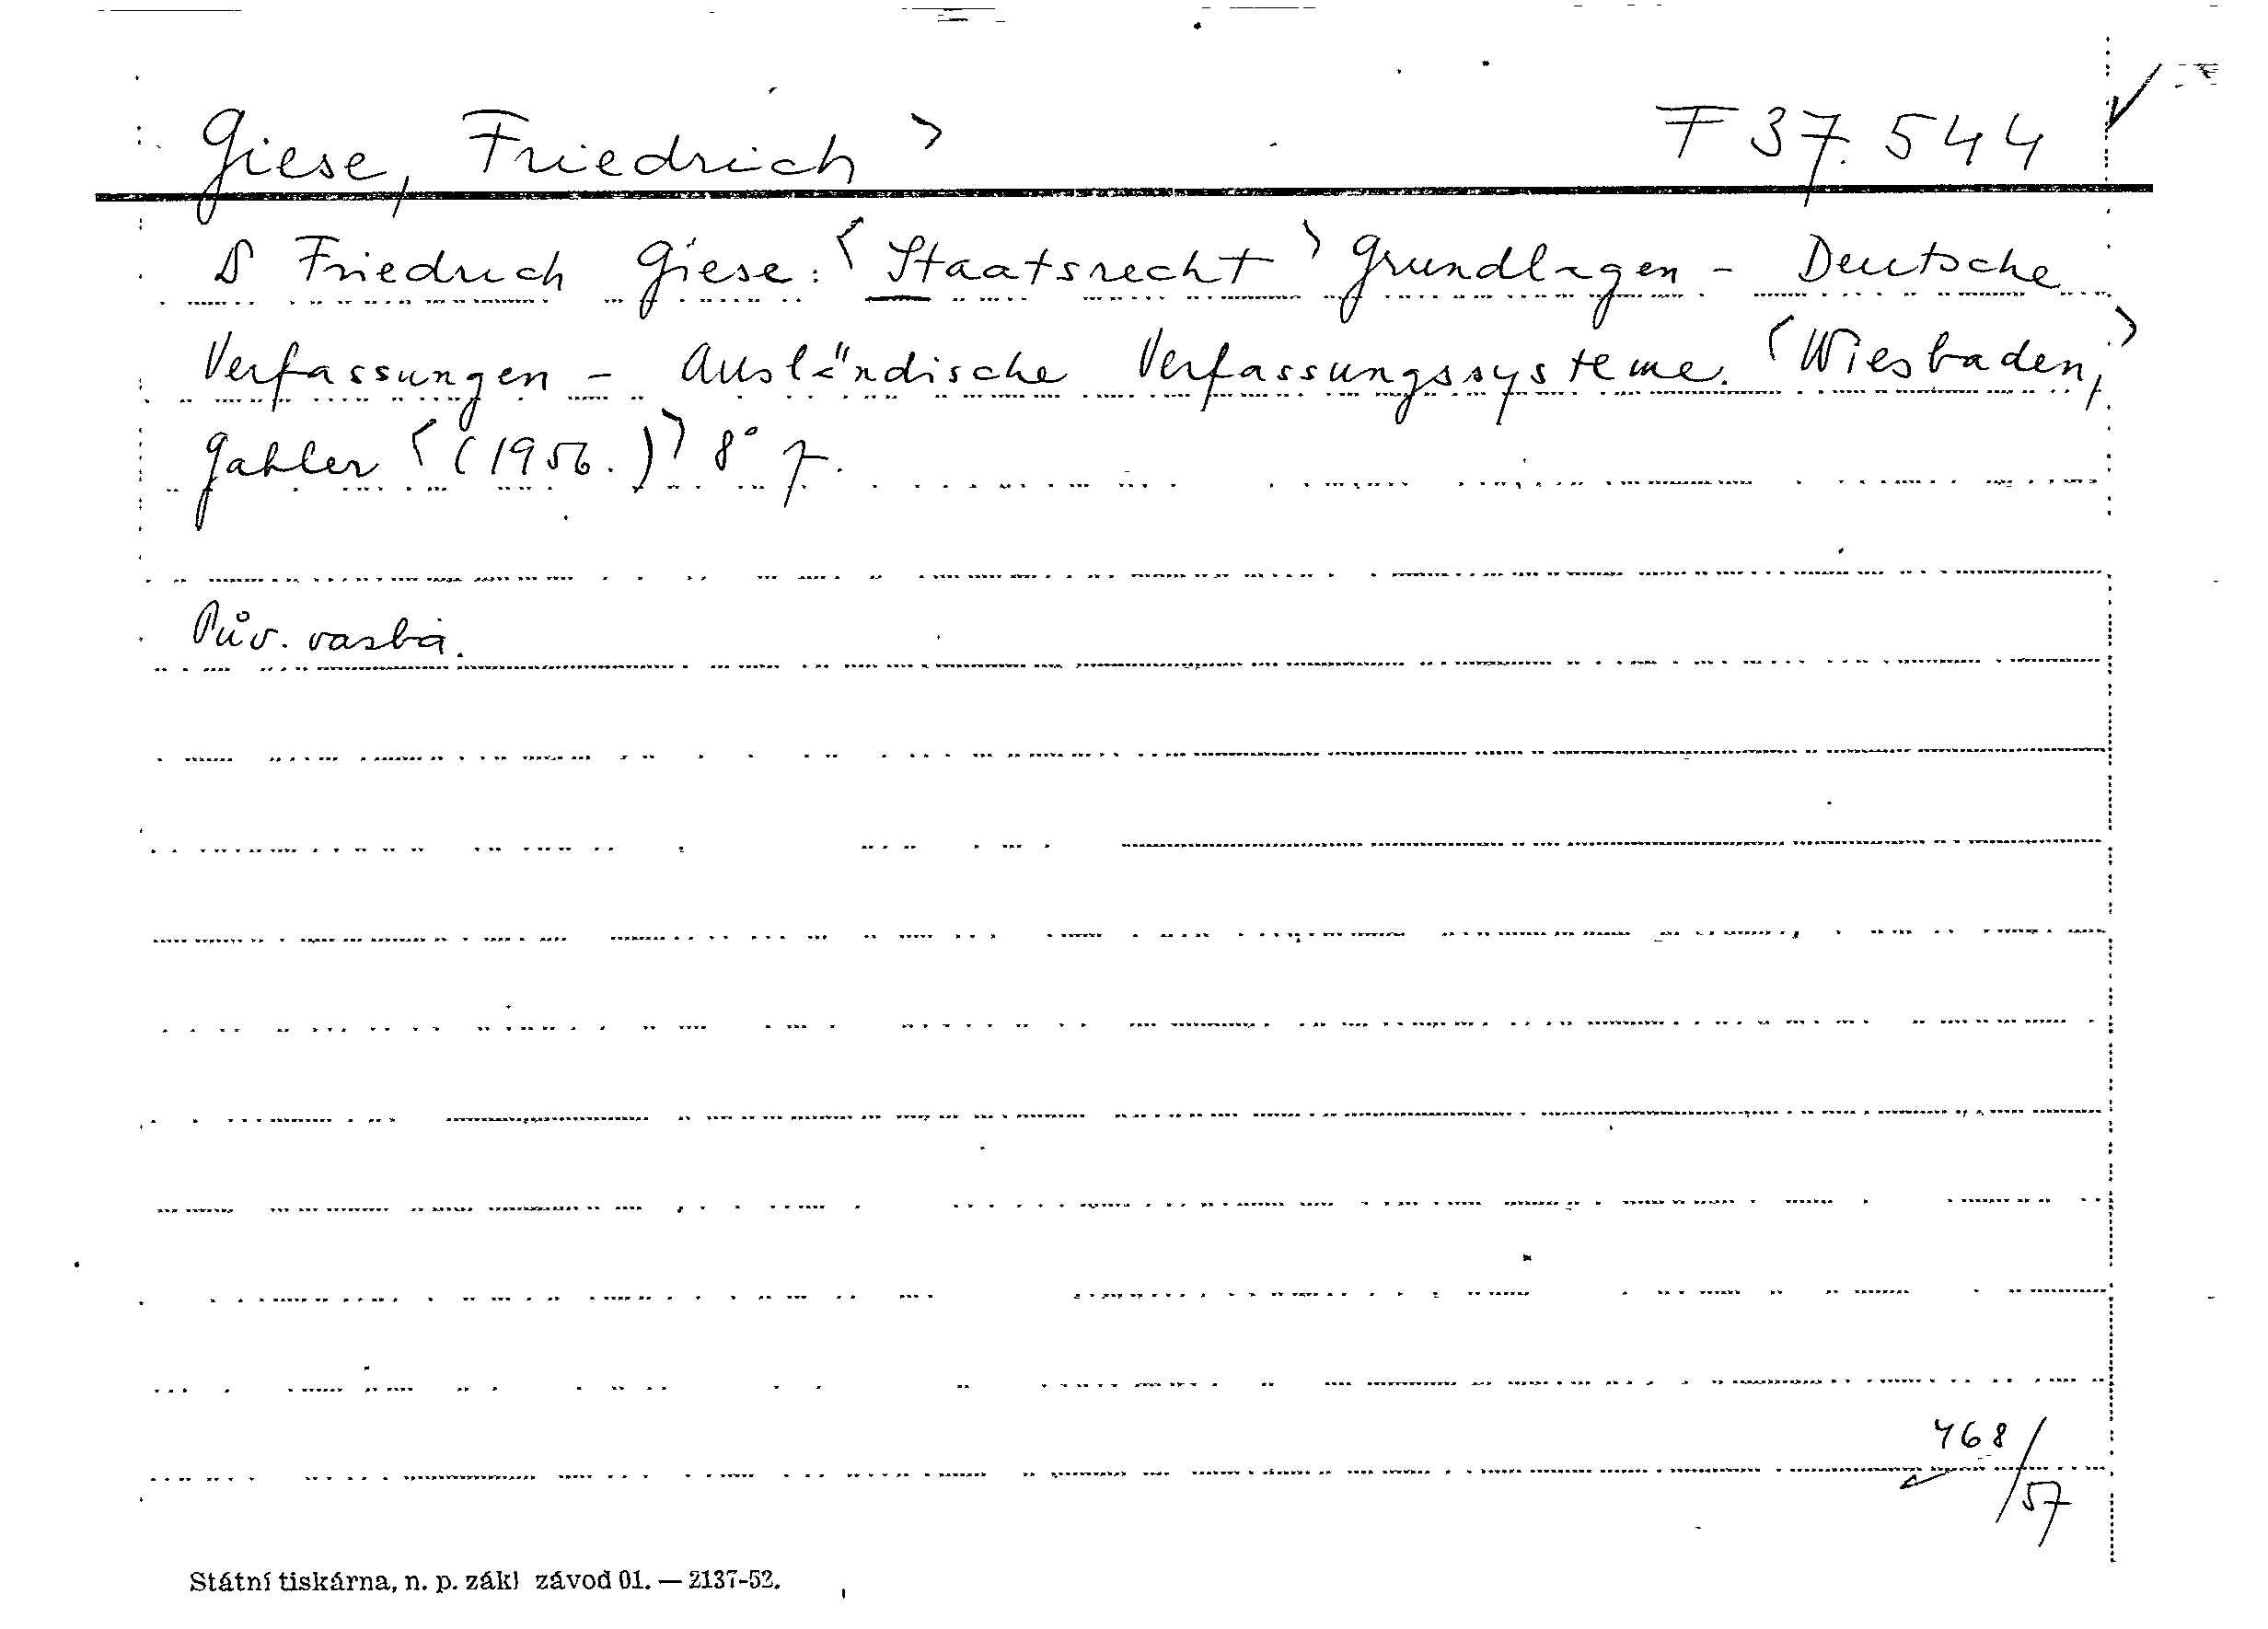 Giese, Friedrich > F 37.544
Friedrich Giese: <Staatsrecht> Grundlagen - Deutsche
Verfassungen - Ausländische Verfassungssysteme. <Wiesbaden,>
Gabler <(1956.)> 8°
Pův. vazba.
468/57
Státní tiskárna, n. p. zákl závod 01. — 2137-52.